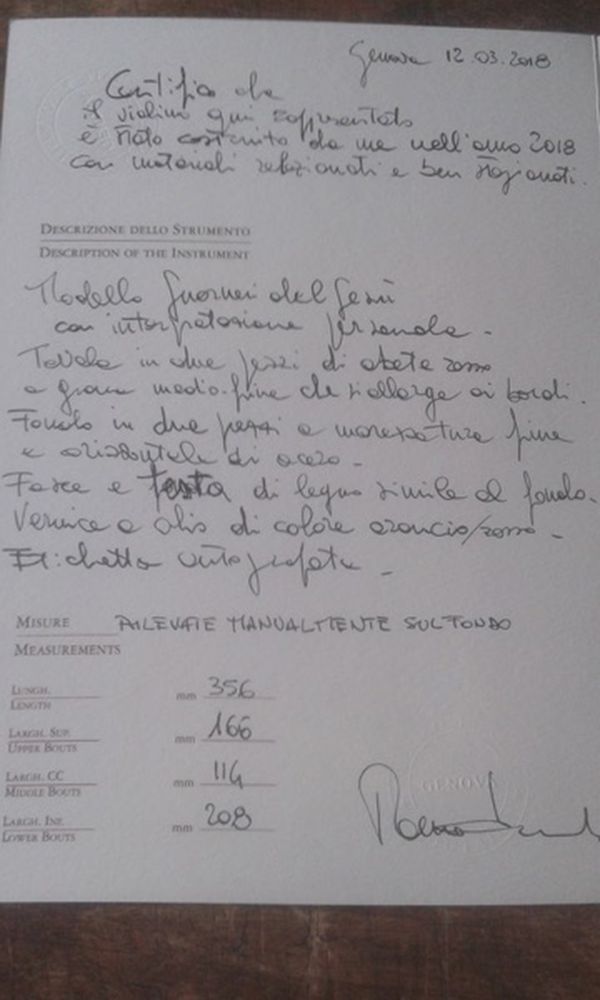 Genova 12.03.2018
Certifico che
il violino qui rappresentato
è stato costruito da me nell'anno 2018
con materiali selezionati e ben stagionati.
DESCRIZIONE DELLO STRUMENTO
DESCRIPTION OF THE INSTRUMENT
Modello Guarneri del Gesù
con interpretazione personale -
Tavola in due pezzi di abete rosso
a grana medio-fine che si allarga ai bordi.
Fondo in due pezzi a marezzatura fine
e orizzontale di acero -
Fasce e testa di legno simile al fondo.
Vernice a olio di colore arancio/rosso -
Etichetta autografata -
MISURE RILEVATE MANUALMENTE SUL FONDO
MEASUREMENTS
LUNGH. mm 356
LENGTH
LARGH. SUP. mm 166
UPPER BOUTS
LARGH. CC mm 114
MIDDLE BOUTS
LARGH. INF. mm 208
LOWER BOUTS
GENOV